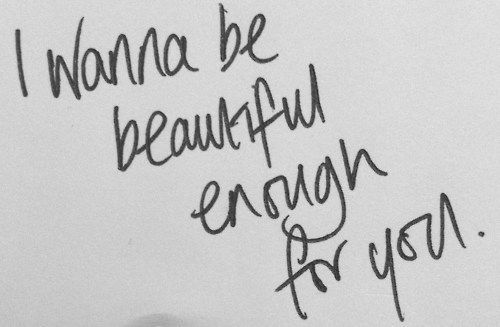 I wanna be
beautiful
enough
for you.